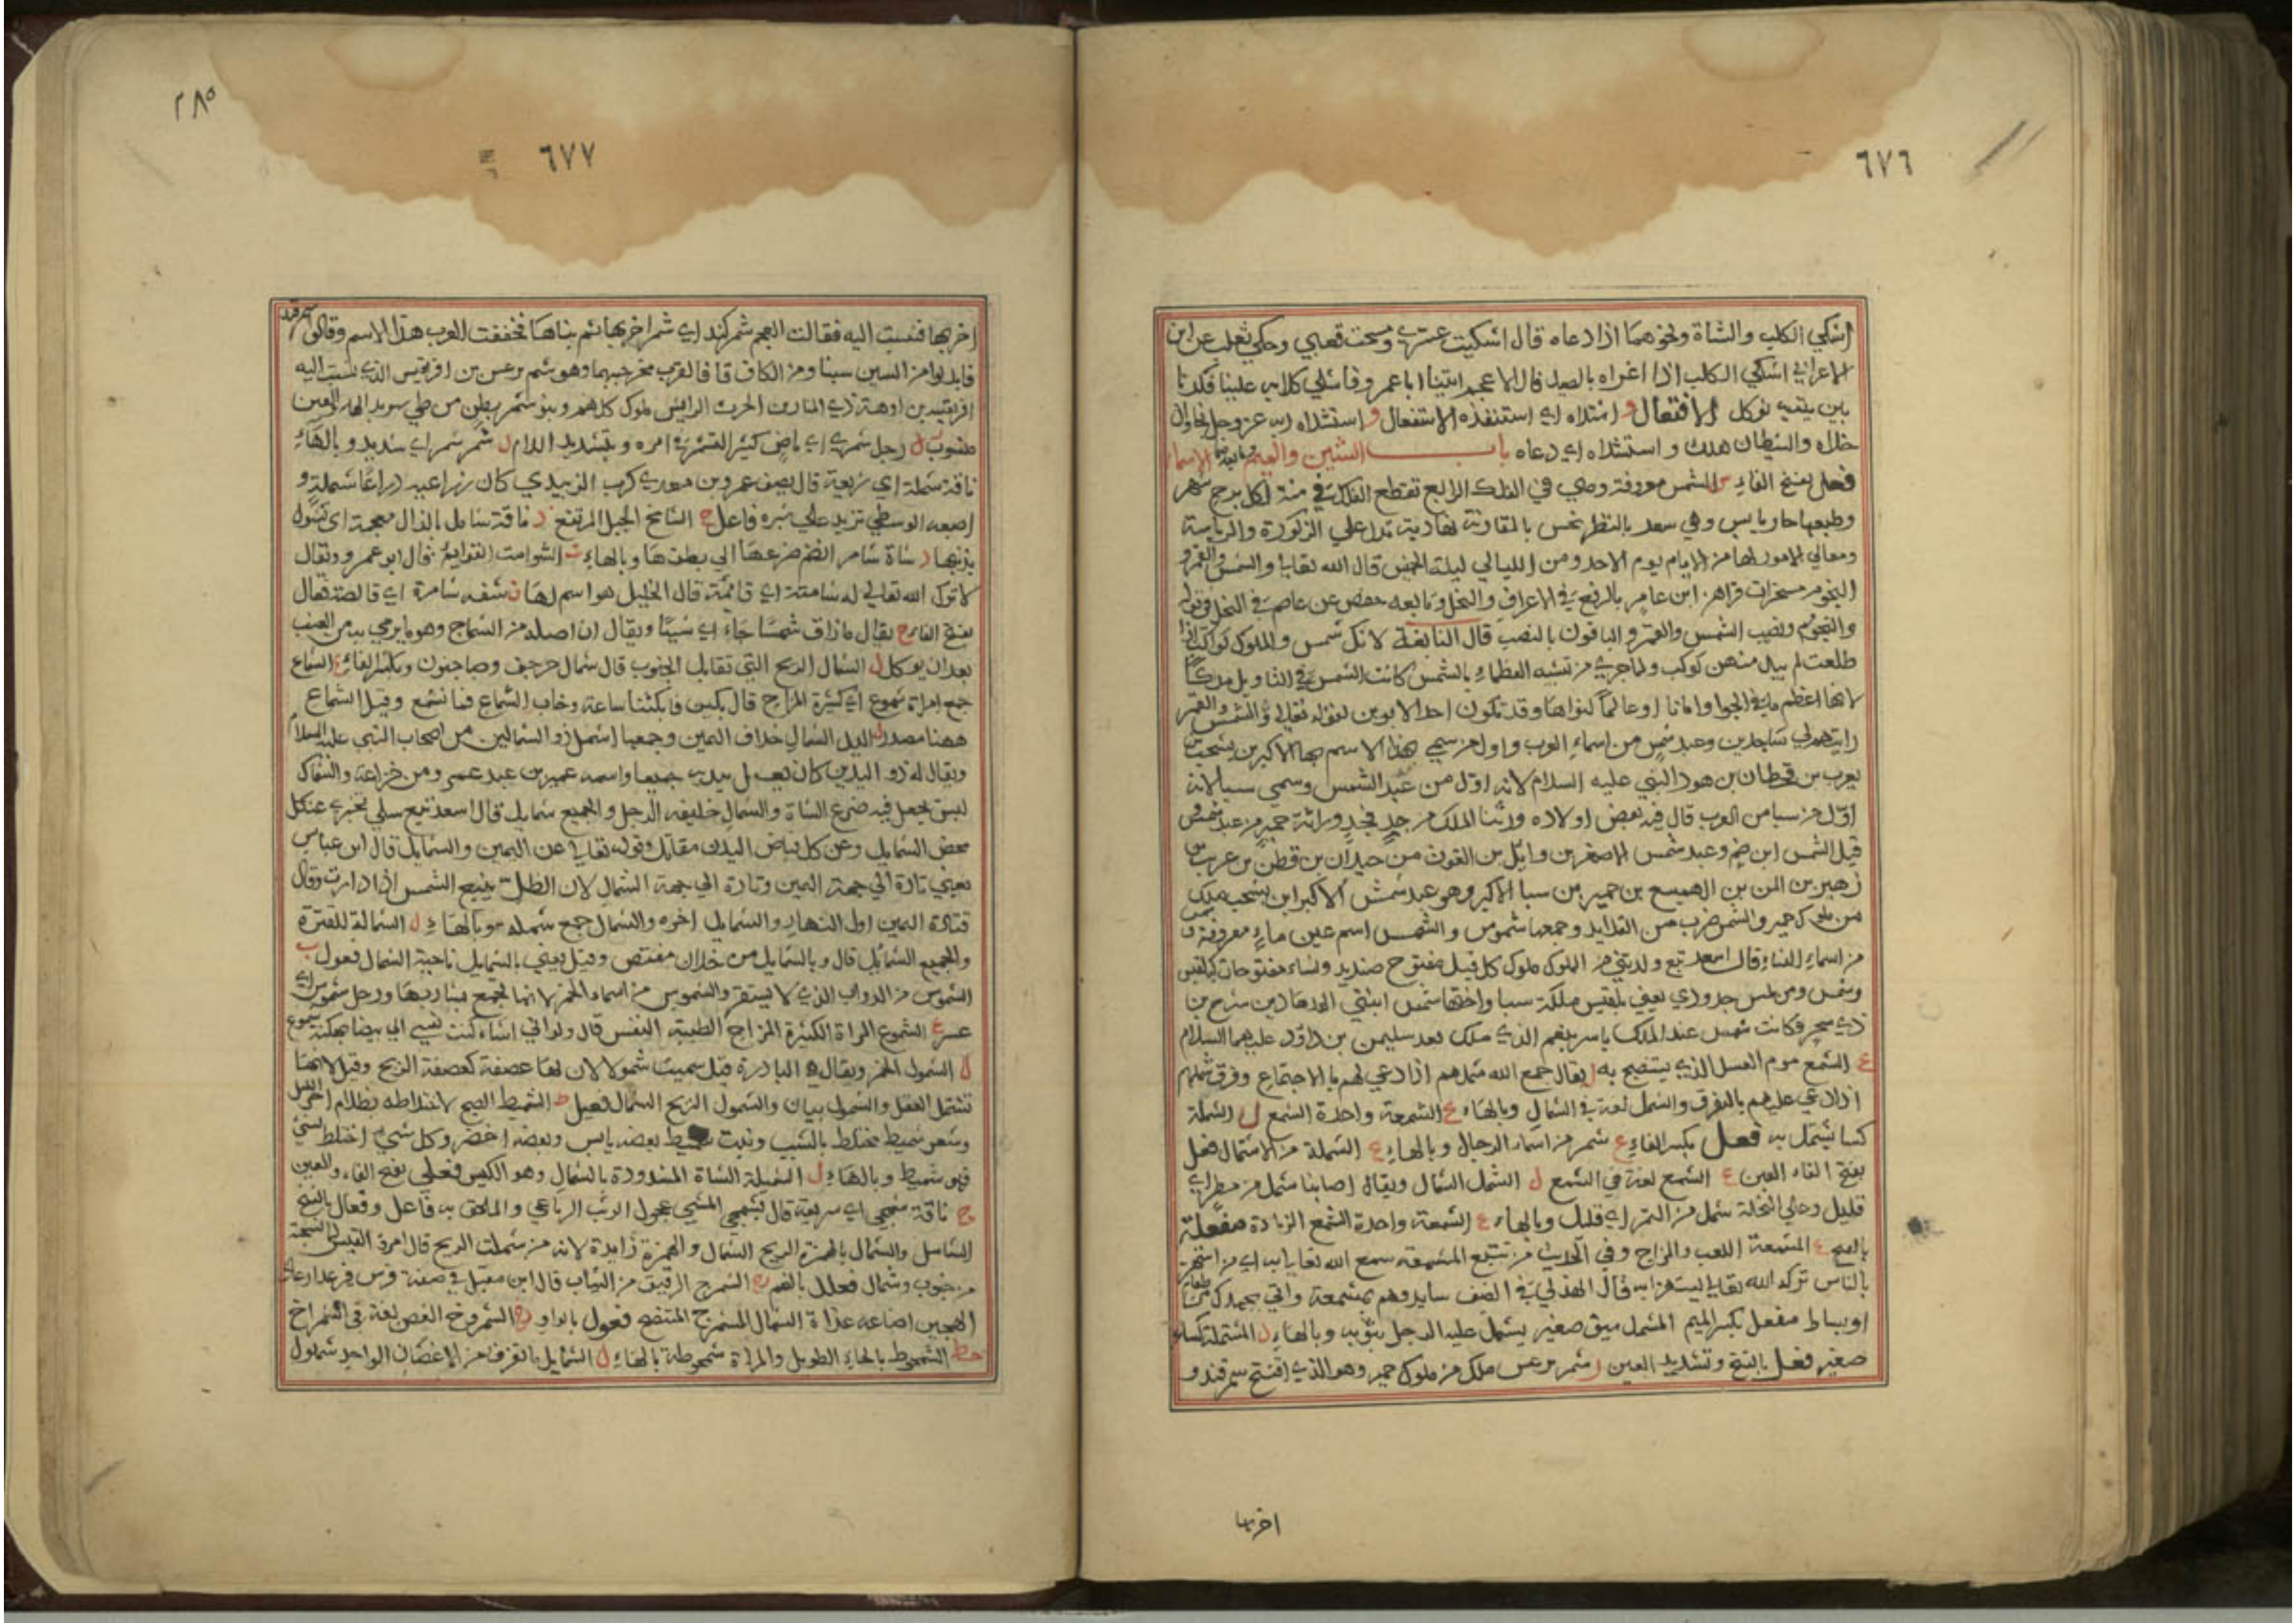 ٦٧٦
اشلي الكلب والشاة ونحوهما اذا دعاه قال اشليت عنزي ومسحت قعبي وحكي ثعلب عن ابن
الاعرابي اشلي الكلب اذا اغراه بالصيد قال الاعجم اتينا ابا عمرو فاشلي كلابه علينا فكدنا
بين بيتيه نوكل الافتعال و اشتلاه اي استنقذه الاستفعال و استشلاه ربه عز وجل
هلك والشيطان هلك واستشلاه اي دعاه باب الشين والميم وما بعدهما الاسماء
فعل بفتح الفاء س الشمس معروفة وهي في الفلك الرابع تقطع الفلك في سنة لكل برج شهر
وطبعها حار يابس وهي سعد بالنظر نحس بالمقارنة نهارية تدل علي الذكورة والرياسة
ومعالي الامور لها من الايام يوم الاحد ومن الليالي ليلة الخميس قال الله تعالي والشمس والقمر و
النجوم مسخرات قراهن ابن عامر بالرفع في الاعراف والنحل وتابعه حفص عن عاصم في النحل في قوله
والنجوم ونصب الشمس والقمر والباقون بالنصب قال النابغة لانك شمس والملوك كواكب اذا
طلعت لم يبد منهن كوكب ولما جري من تشبيه العظماء بالشمس كانت الشمس في التاويل ملكا
لانها اعظم ما في الجو او امانا او عالما لنورها وقد تكون احد الابوين لقوله تعالي والشمس والقمر
رايتهم لي ساجدين وعبد شمس من اسماء العرب واول من سمي بهذا الاسم سبا الاكبر بن يشجب بن
يعرب بن قحطان بن هود النبي عليه السلام لانه اول من عبد الشمس وسمي سبا لانه
اول من سبا من العرب قال فيه بعض اولاده ورثنا الملك من جد فجد وراثة حمير من عبد شمس
قيل الشمس اسم صنم وعبد شمس الاصغر بن وايل بن الغوث من حيدان بن قطن بن عريب بن
زهير بن ايمن بن الهميسع بن حمير بن سبا الاكبر وهو عبد شمس الاكبر ابن يشجب ملك
من ملوك حمير والشمس ضرب من القلايد وجمعها شموس والشمس اسم عين ماء معروفة
من اسماء النساء قال اسعد تبع ولدتني من الملوك ملوك كل قيل متوج صنديد ونساء متوجات كبلقيس
وشمس ومن لميس جدودي يعني بلقيس ملكة سبا واختها شمس ابنتي الهدهاد بن شرح بن
ذي سحر وكانت شمس عند الملك ياسر ينعم الذي ملك بعد سليمن بن داود عليهما السلام
ع الشمع موم العسل الذي يستصبح به ل يقال جمع الله شملهم اذا دعي لهم بالاجتماع وفرق شملهم
اذا دعي عليهم بالتفرق والشمل لغة في الشمال وبالهاء ع الشمعة واحدة الشمع ل الشملة
كسا يشتمل به فعل بكسر الفاء شمر من اسماء الرجال وبالهاء الشملة من الاشتمال فعل
بفتح الفاء العين ع الشمع لغة في الشمع ل الشمل الشمال ويقال اصابنا شمل من مطر اي
قليل وعلي النخلة شمل من التمر اي قليل وبالهاء ع الشمعة واحدة الشمع الزيادة مفعلة
بالفتح ع المشمعة اللعب والمزاح وفي الحديث من تتبع المشمعة سمع الله تعالي به اي من استهزء
بالناس تركه الله تعالي يستهزا به قال الهذلي في الضيف سابدوهم بمشمعة واتي بجهدي من طعام
او بساط مفعل بكسر الميم المشمل سيف صغير يشتمل عليه الرجل بثوبه وبالهاء ل المشملة كساء
صغير فعل بالفتح وتشديد العين ر شمر يرعش ملك من ملوك حمير وهو الذي افتتح سمرقند و
اخربها
٢٨٥
٦٧٧
اخربها فنسبت اليه فقالت العجم شمر كند اي شمر اخربها ثم بناها فخففت العرب هذا الاسم وقالوا سمرقند
فابدلوا من الشين سينا ومن الكاف قافا لقرب مخرجيهما وهو شمر يرعش بن افريقيس الذي نسبت اليه
افريقية بن ابرهة ذي المنار بن الحرث الرايش ملوك كلهم وبنو شمر بطن من طي
رجل شمري اي ماض كثير التشمر في امره وبتشديد اللام ل شمر شمر اي شديد وبالهاء
ناقة شملة اي سريعة قال يصف عمرو بن معدي كرب الزبيدي كان زراعيه ذراعا شملة و
اصبعه الوسطي تزيد علي شبره فاعل خ الشامخ الجبل المرتفع ذ ناقة شامذ بالذال معجمة اي تشول
بذنبها ر شاة شامر انضم ضرعها الي بطنها وبالهاء ت الشوامت القوايم قال ابو عمرو ويقال
لا ترك الله تعالي له شامتة اي قائمة قال الخليل هو اسم لها ن شفه شامرة اي قالصة فعال
بفتح الفاء ج يقال ما ذاق شمسا جاء اي شيئا ويقال ان اصله من الشماج وهو ما يرمي به من العنب
بعد ان يوكل ل الشمال الريح التي تقابل الجنوب قال شمال حرجف وصاحبون وبكسر الفاء ع الشماع
جمع امراة شموع اي كثيرة المزاح قال بكين فابكتنا ساعة وخاب الشماع فما نشمع وقيل الشماع
ههنا مصدر ل اليد الشمال خلاف اليمين وجمعها اشمل ذو الشمالين من اصحاب النبي عليه السلام
ويقال له ذو اليدين كان يعمل بيديه جميعا واسمه عمير بن عبد عمرو من خزاعة والشمال
لبس يجعل فيه ضرع الشاة والشمال خليقة الرجل والجميع شمايل قال اسعد تبع سلي تخبري عن كل
محض الشمايل وعن كل فياض اليدين مقاتل وقوله تعالي عن اليمين والشمايل قال ابن عباس
يعني تارة الي جهة اليمين وتارة الي جهة الشمال لان الظل يتبع الشمس اذا دارت وقال
قتادة اليمين اول النهار والشمايل اخره والشمال جمع شمله وبالهاء ل الشمالة للقترة
والجميع الشمايل قال وبالشمايل من جلان مقتنص وقيل يعني بالشمايل ناحية الشمال فعول ب
الشموس من الدواب الذي لا يستقر والشموس من اسماء الخمر لانها تجمع بشاربها ورجل شموس اي
عسر ع الشموع المراة الكثيرة المزاح الطيبة النفس قال ولو اني اشاء كنت نفسي الي بيضا بهكنة شموع
ل الشمول الخمر ويقال هي الباردة قيل سميت شمولا لان لها عصفة كعصفة الريح وقيل لانها
تشتمل العقل والشمول بيان والشمول الريح الشمال فعيل ط الشميط الصبح لاختلاطه بظلام اخر الليل
وشعر شميط مختلط بالشيب ونبت شميط بعضه يابس وبعضه اخضر وكل شيء اختلط لشيء
فهو شميط وبالهاء ل الشميلة الشاة المشدودة بالشمال وهو الكيس فعلي بفتح الفاء والعين
ج ناقة شمجي اي سريعة قال بشمجي المشي عجول الوثب الرباعي والملحق به فاعل وفعال بالفتح
الشامل والشمال بالهمزة الريح الشمال والهمزة زايدة لانه من شملت الريح قال امرؤ القيس لما نسجته
من جنوب وشمال فعلل بالضم ج الشمرج الرقيق من الثياب قال ابن مقبل في صفة فرس
الهجين اضاعه غداة الشمال الشمرج المتنصح فعول بالواو خ الشمروخ الغصن لغة في الشمراخ
حط الشمحوط بالحاء الطويل والمراة شمحوطة بالهاء ل الشمايل ما تفرق من الاغصان الواحد شملول